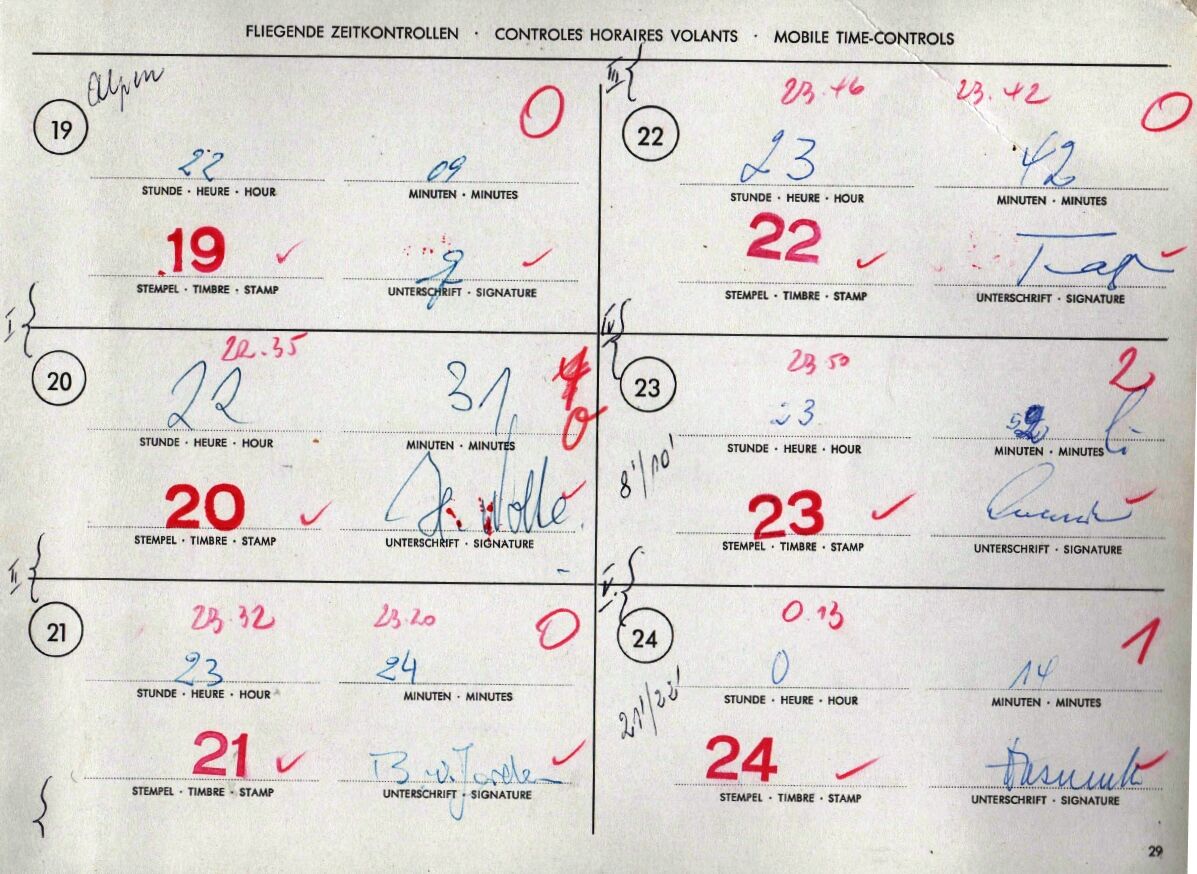 FLIEGENDE ZEITKONTROLLEN · CONTROLES HORAIRES VOLANTS · MOBILE TIME-CONTROLS
Alpen
19
0
22 09
STUNDE · HEURE · HOUR MINUTEN · MINUTES
19
STEMPEL · TIMBRE · STAMP UNTERSCHRIFT · SIGNATURE
I
20
22.35
22 31
0
STUNDE · HEURE · HOUR MINUTEN · MINUTES
20
STEMPEL · TIMBRE · STAMP UNTERSCHRIFT · SIGNATURE
II
21
23.32 23.20
0
23 24
STUNDE · HEURE · HOUR MINUTEN · MINUTES
21
STEMPEL · TIMBRE · STAMP UNTERSCHRIFT · SIGNATURE
III
22
23.46 23.42
0
23 42
STUNDE · HEURE · HOUR MINUTEN · MINUTES
22
STEMPEL · TIMBRE · STAMP UNTERSCHRIFT · SIGNATURE
IV
23
23 50
2
23
STUNDE · HEURE · HOUR MINUTEN · MINUTES
8'/10'
23
STEMPEL · TIMBRE · STAMP UNTERSCHRIFT · SIGNATURE
V.
24
0.13
1
0 14
STUNDE · HEURE · HOUR MINUTEN · MINUTES
21'/22'
24
STEMPEL · TIMBRE · STAMP UNTERSCHRIFT · SIGNATURE
29